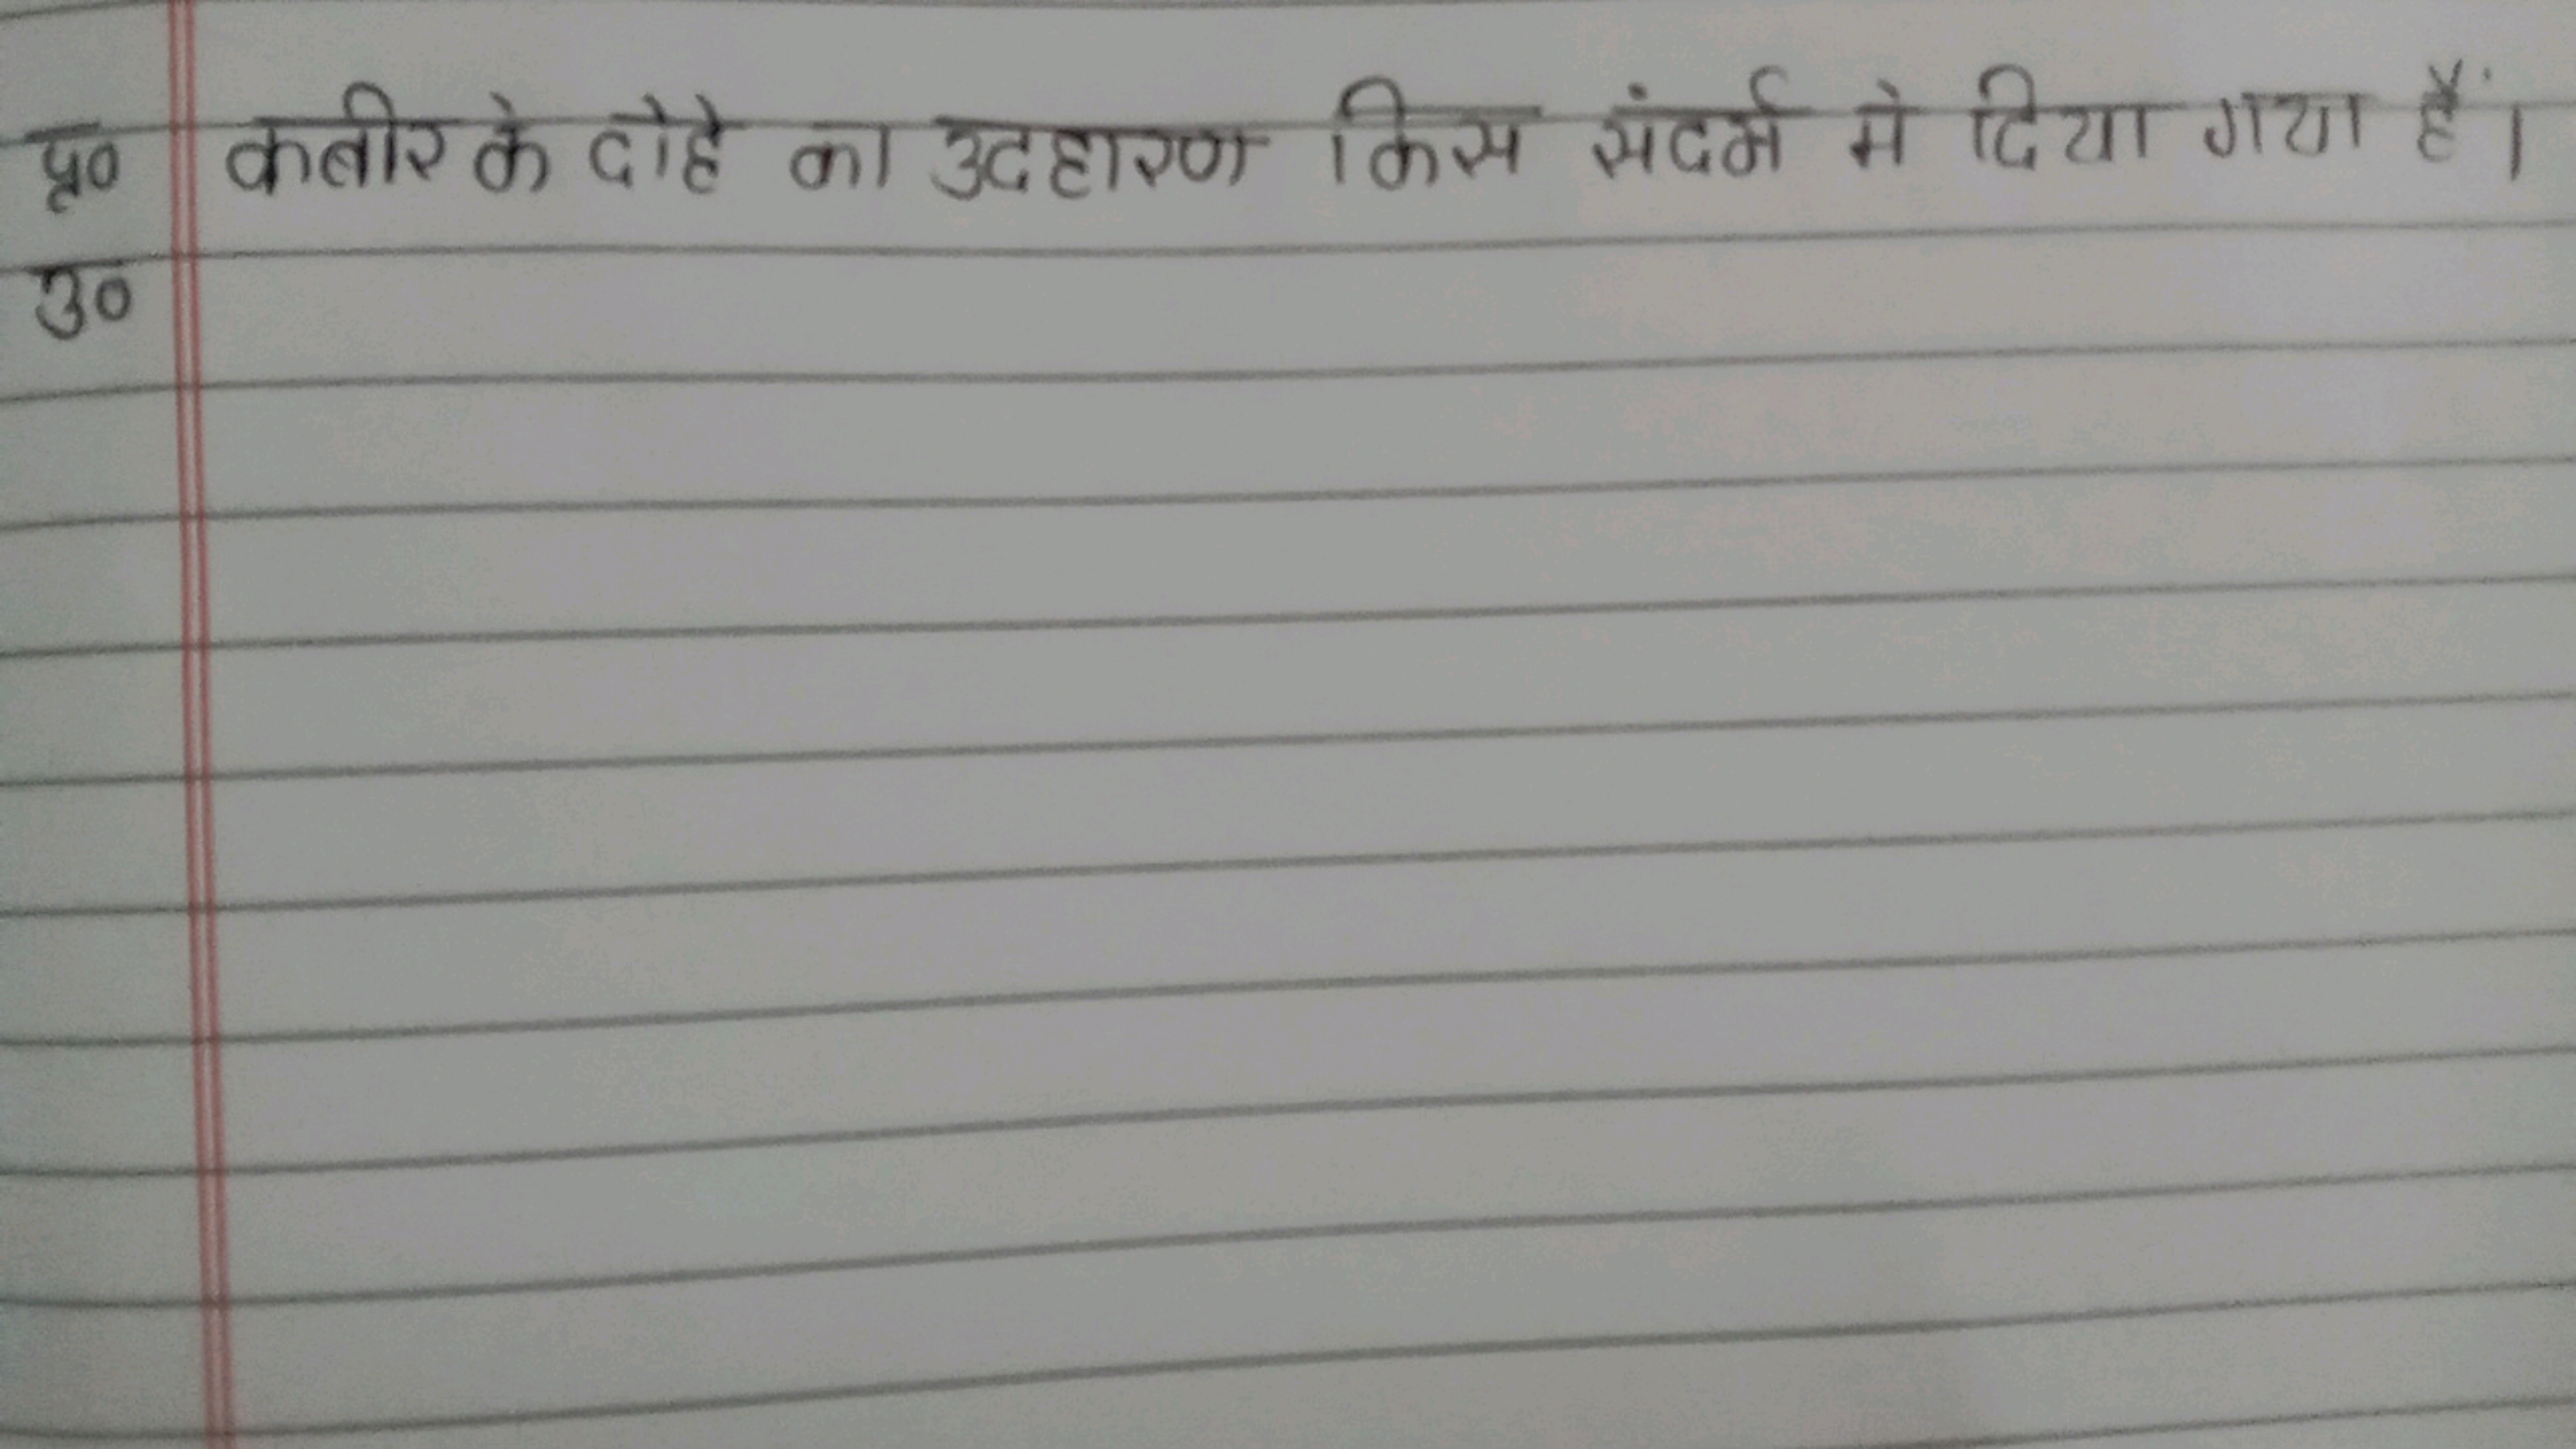 प्र० कबीर के दोहे का उदहारण किस संदर्भ मे दिया गया हैं।
उ०